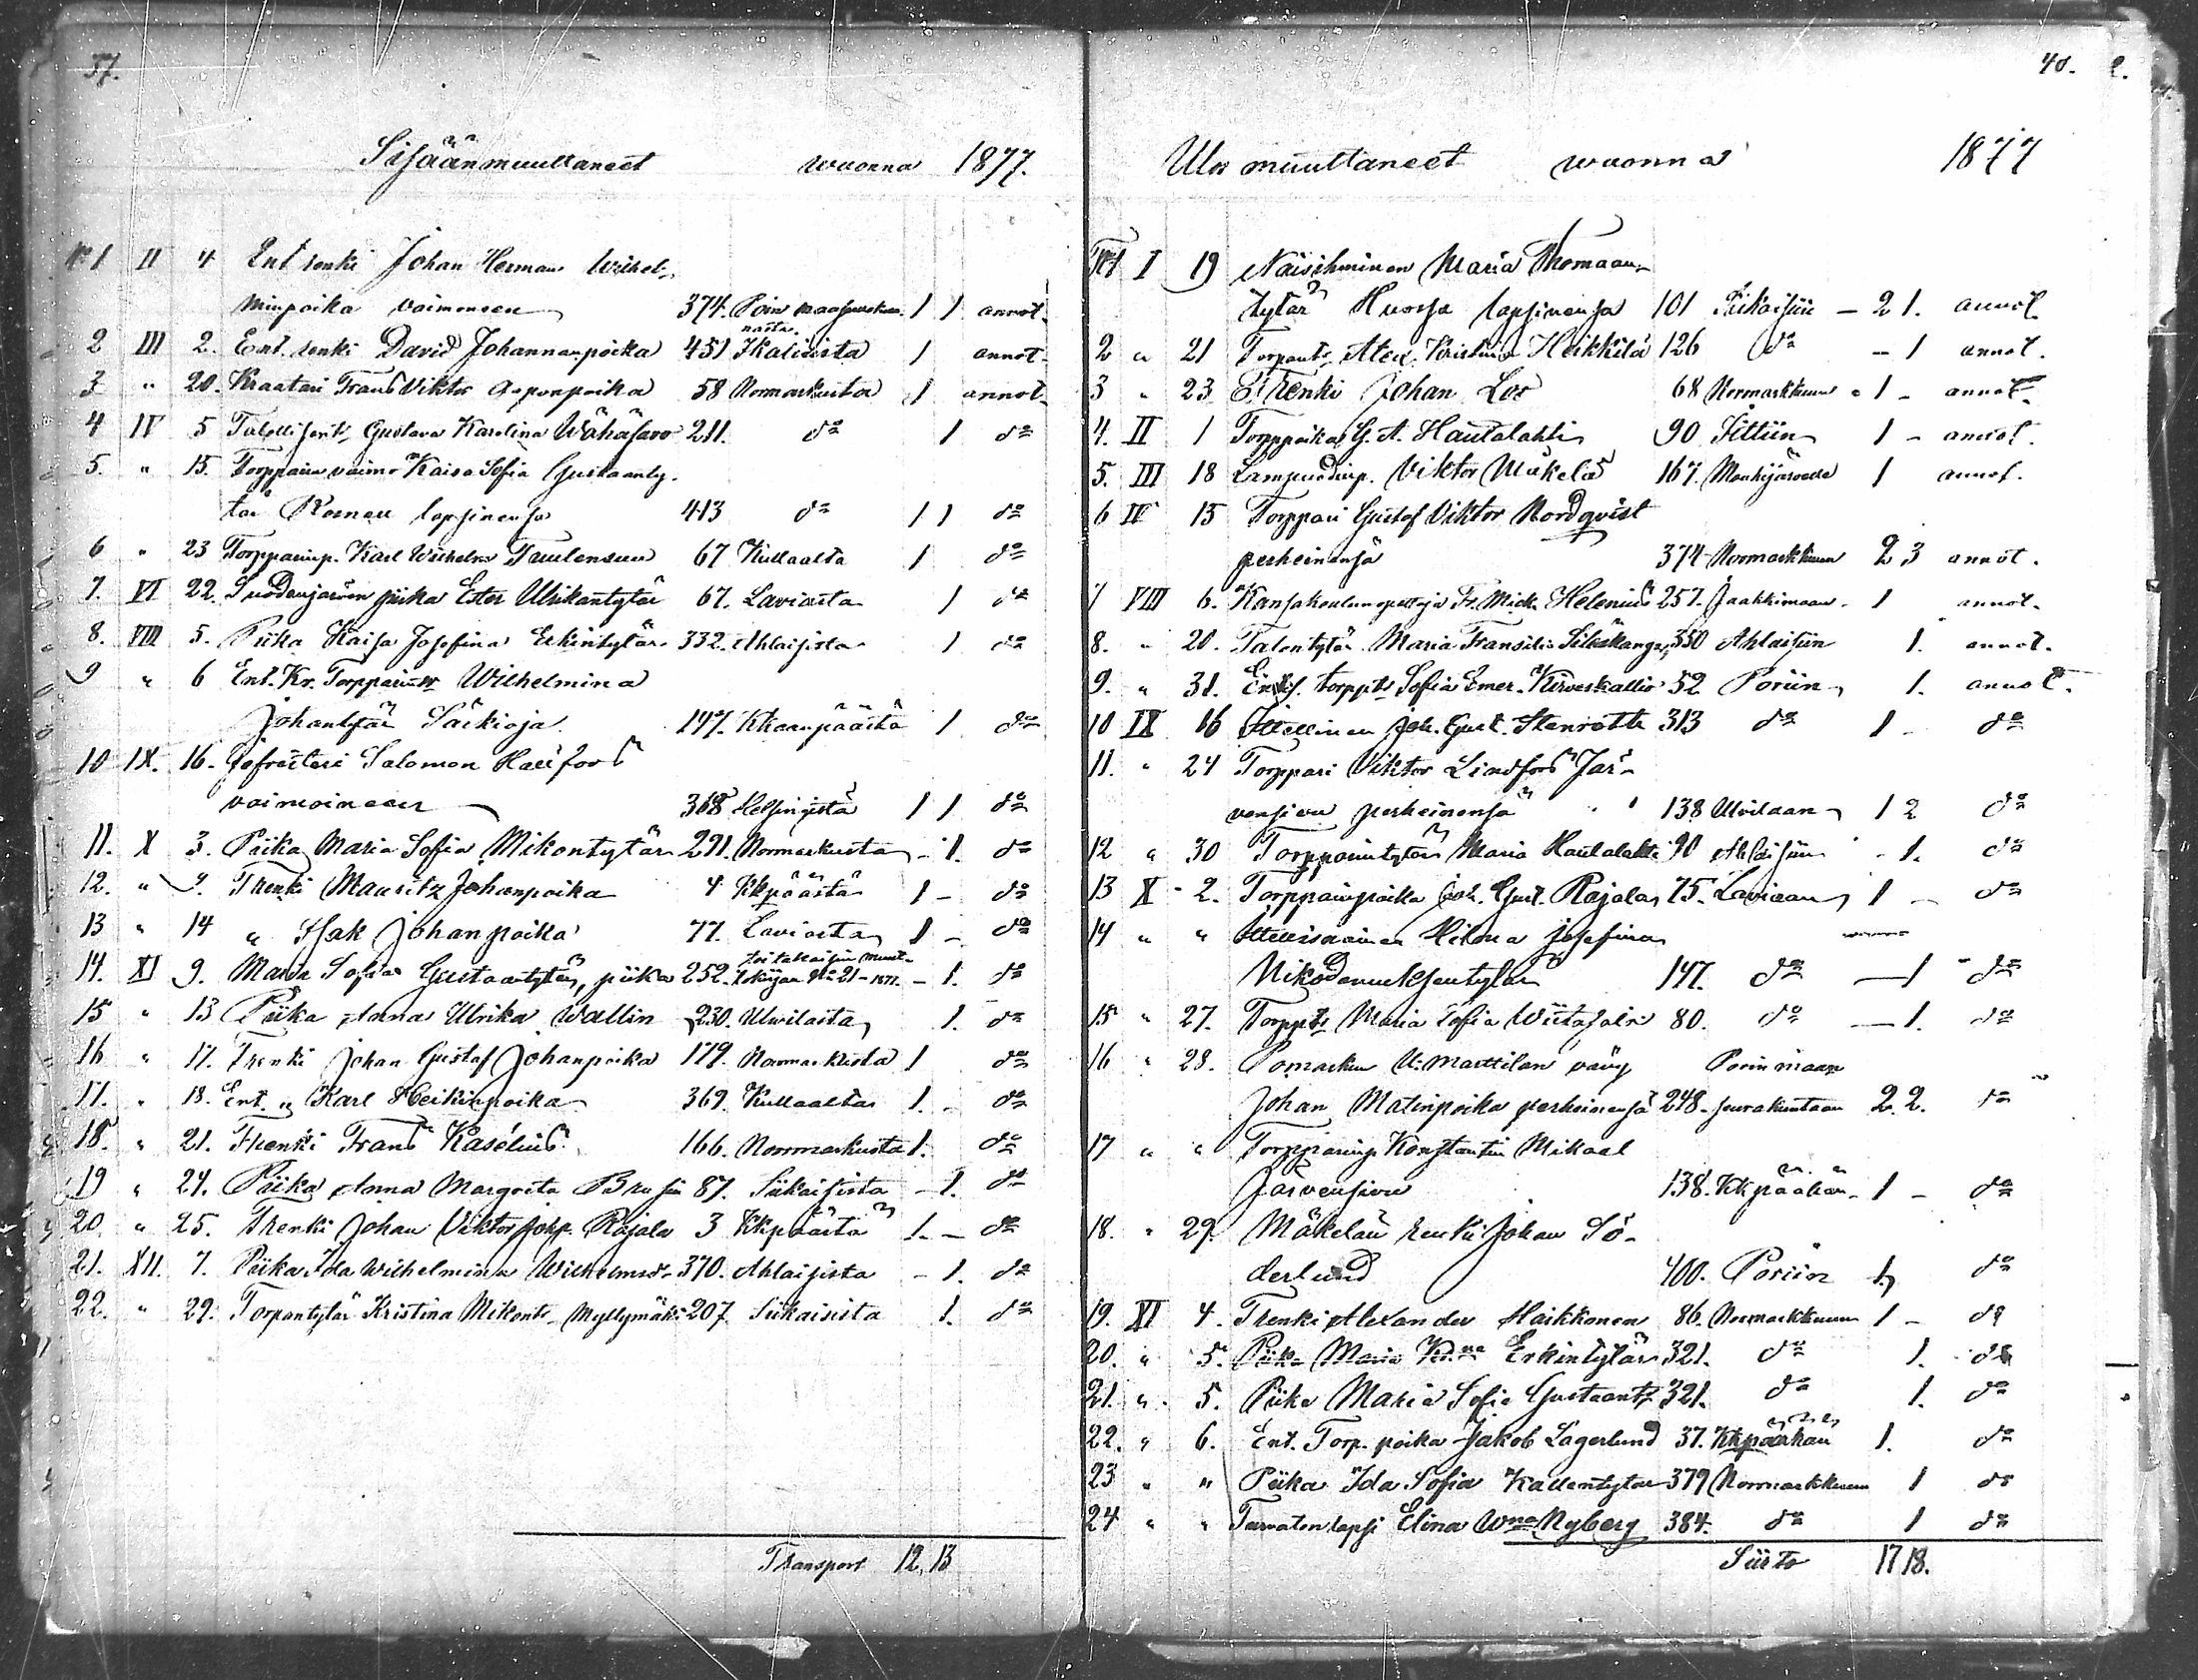 37.
Sisäänmuuttaneet wuonna 1877.
No 1 II 4 Ent. renki Johan Herman Wilhel-
minpoika vaimonsa 374. Porin maaseurakun- 1 1 annot.
nasta.
2 III 2. Ent. renki David Johannanpoika 451 Ikalisista 1 annot.
3 " 20. Kraatari Frans Viktor Aaponpoika 58 Normarkusta 1 annot.
4 IV 5 Gustava Karolina Wähäsavo 211. do 1 do
5. " 15. Torpparin vaimo Kaisa Sofia Gustaanty-
tär lapsinensa 413 do 1 1 do
6 " 23 Torpparinp. Karl Wilhelm 67 Kullaalta 1 do
7. VI 22. piika Ester Ulrikantytär 67. Laviasta 1 do
8. VIII 5. Piika Kaisa Josefina Erkintytär 332. Ahlaisista 1 do
9 " 6 Ent. Kr. Wilhelmina
Johantytär Särkioja 147. Kkaanpäästä 1 do
10 IX. 16. Salomon
vaimoineen 368 Helsingistä 1 1 do
11. X 3. Piika Maria Sofia Mikontytär 291. Normarkusta - 1. do
12. " 9. Trenki Mauritz Johanpoika 4 Kkpäästä 1 - do
13 " 14 " Isak Johanpoika 77. Laviasta 1 - do
14. XI 9. Maria Sofia Gustaantytär, piika 252. No 21 - 1877. - 1. do
15 " 13 Piika Anna Ulrika Wallin 230. Ulwilasta 1. do
16 " 17. Trenki Johan Gustaf Johanpoika 179. Normarkusta 1 do
17. " 18. Ent. " Karl Heikinpoika 369. Kullaalta 1. - do
18. " 21. Trenki Frans Kasélius 166. Noormarkusta 1. do
19 " 24. Piika Anna Margreta Brusin 87. Siikaisista - 1. do
20. " 25. Trenki Johan Viktor Johp. Rajala 3 Kkpäästä 1. - do
21. XII. 7. Piika Ida Wilhelmina 370. Ahlaisista - 1. do
22. " 29. Torpantytär Kristina Mikont. Myllymäki 207. Siikaisista 1. do
Transport 12, 13
40.
Ulos muuttaneet wuonna 1877
No 1 I 19 Naisihminen Maria Thomaan-
tytär lapsinensa 101 Siikaisiin - 2 1. annot.
2 " 21 Kristina Heikkilä 126 do - 1 annot.
3 " 23 Trenki Johan 68 Normarkkuun " 1 - annot.
4. II 1 Torppoika G. A. Hautalahti 90 1 - annot.
5. III 18 Lampuodinp. Viktor Mäkelä 167. Mouhijärvelle 1 annot.
6 IV 15 Torppari Gustaf Viktor Nordqvist
perheinensä 374 Normarkkuun 2 3 annot.
7 VIII 6. Kansakoulunopettaja Fr. Mick. Helenius 257. Jaakkimaan 1 annot.
8. " 20. Talontytär Maria 350 Ahlaisiin 1. annot.
9. " 31. Ent. torppts Sofia Kirveskallio 52 Poriin 1. annot.
10 IX 16 Itsellinen Joh. Gust. Stenroth 313 do 1 - do
11. " 24 Torppari Viktor Lindfors Jär-
vensivu perheinensä 138 Ulvilaan 1 2 do
12 " 30 Torpparintytär Maria Hautalahti 90 Ahlaisiin - 1. do
13 X 2. Torpparinpoika Joh. Gust. Rajala 75. Laviaan 1 - do
14 " " Hilma Josefina
147. do - 1 do
15 " 27. Torppts Maria Sofia Wiitasalo 80. do - 1. do
16 " 28. Pomarkun Porin maan
Johan Matinpoika perheinensä 248. seurakuntaan 2. 2. do
17 " " Torpparinp. Konstantin Mikael
Järvensivu 138. Kkpäähän 1 - do
18. " 29. Mäkelän renki Johan Sö-
derlund 400. Poriin 1 do
19. XI 4. Trenki Alexander Haikkonen 86. Normarkkuun 1 - do
20. " 5. Piika Maria Erkintytär 321. do 1. do
21. " 5. Piika Maria Sofia Gustaant. 321. do 1. do
22. " 6. Ent. Torp. poika Jakob Lagerlund 37. Kkpäähän 1. do
23 " " Piika Ida Sofia Kallentytär 379 Normarkkuun 1 do
24 " " Turvaton lapsi Elina Wna Nyberg 384. do 1 do
Siirto 17 18.